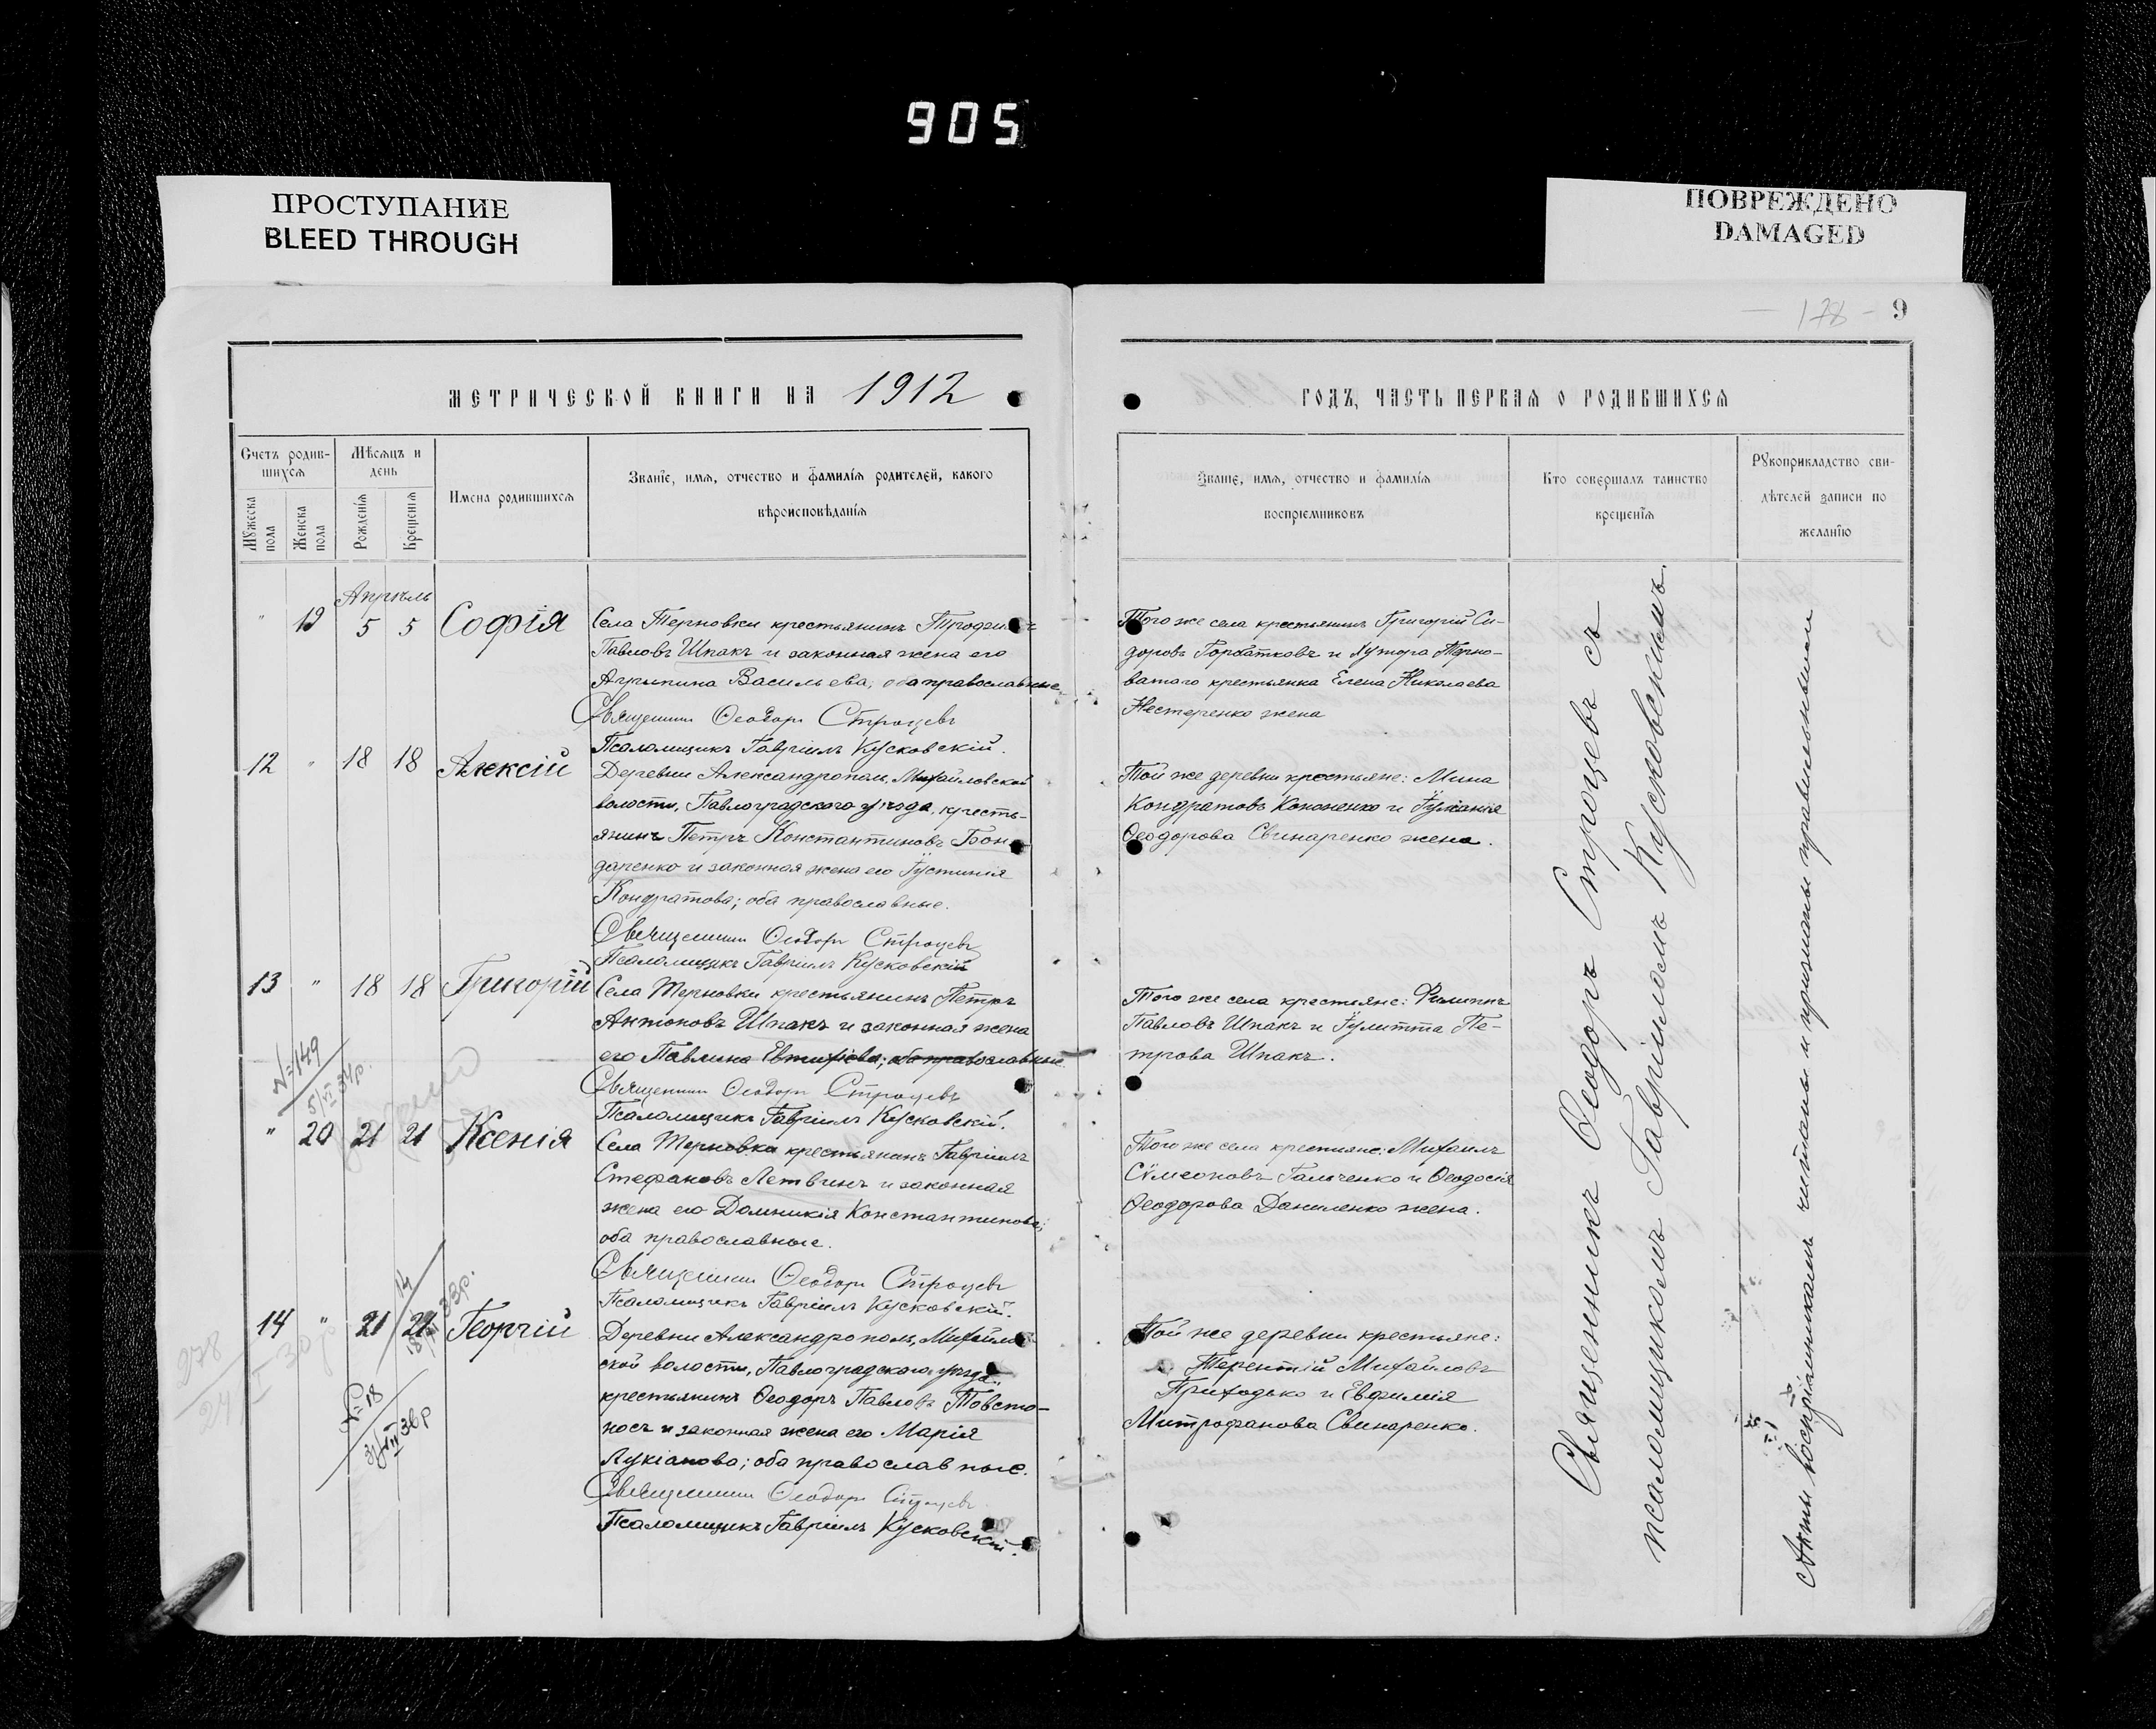 905
ПРОСТУПАНИЕ
BLEED THROUGH
ПОВРЕЖДЕНО
DAMAGED
— 178 — 9
МЕТРИЧЕСКОЙ КНИГИ НА 1912
Счетъ родив-
шихся
Мѣсяцъ и
день
Мужеска
пола
Женска
пола
Рожденія
Крещенія
Имена родившихся
Званіе, имя, отчество и фамилія родителей, какого
вѣроисповѣданія
Апрѣль
" 19 5 5 Софія
Села Терновки крестьянинъ
Павловъ Шпакъ и законная жена его
Агрипина Васильева; оба православные.
Священникъ Ѳеодоръ Строцевъ
Псаломщикъ Гавріилъ Кусковскій.
12 " 18 18 Алексій
Деревни Александрополь, Михайловской
волости, Павлоградского уѣзда, кресть-
янинъ Петръ Константиновъ Бон-
даренко и законная жена его Іустинія
Кондратова; оба православные.
Священникъ Ѳеодоръ Строцевъ
Псаломщикъ Гавріилъ Кусковскій
13 " 18 18 Григорій
Села Терновки крестьянинъ Петръ
Антоновъ Шпакъ и законная жена
его Павлина Евтихіева; оба православные
Священникъ Ѳеодоръ Строцевъ
Псаломщикъ Гавріилъ Кусковскій.
№ 149
5/VI 34р.
" 20 21 21 Ксенія
Села Терновки крестьянинъ Гавріилъ
Стефановъ Летвинъ и законная
жена его Домникія Константинова;
оба православные.
Священникъ Ѳеодоръ Строцевъ
Псаломщикъ Гавріилъ Кусковскій.
14 " 21 22 Георгій
Деревни Александрополь, Михайлов-
ской волости, Павлоградского уѣзда,
крестьянинъ Ѳеодоръ Павловъ Товсто-
носъ и законная жена его Марія
Лукіанова; оба православные.
Священникъ Ѳеодоръ Строцевъ
Псаломщикъ Гавріилъ Кусковскій.
14
33р.
278
№ 18
36р
ГОДЪ, ЧАСТЬ ПЕРВАЯ О РОДИВШИХСЯ
Званіе, имя, отчество и фамилія
воспріемниковъ
Кто совершалъ таинство
крещенія
Рукоприкладство сви-
дѣтелей записи по
желанію
Того же села крестьянинъ Григорій Си-
доровъ Горбатковъ и хутора Терно-
ватаго крестьянка Елена Николаева
Нестеренко жена
Той же деревни крестьяне: Мина
Кондратовъ Кононенко и Іуліанія
Ѳеодорова Свинаренко жена.
Того же села крестьяне: Филиппъ
Павловъ Шпакъ и Іулитта Пе-
трова Шпакъ.
Того же села крестьяне: Михаилъ
Сѵмеоновъ Гальченко и Ѳеодосія
Ѳеодорова Даниленко жена.
Той же деревни крестьяне:
Терентій Михайловъ
Приходько и Евфимія
Митрофанова Свинаренко.
Священникъ Ѳеодоръ Строцевъ съ
псаломщикомъ Гавріиломъ Кусковскимъ.
Акты воспріемникамъ читаны и признаны правильными